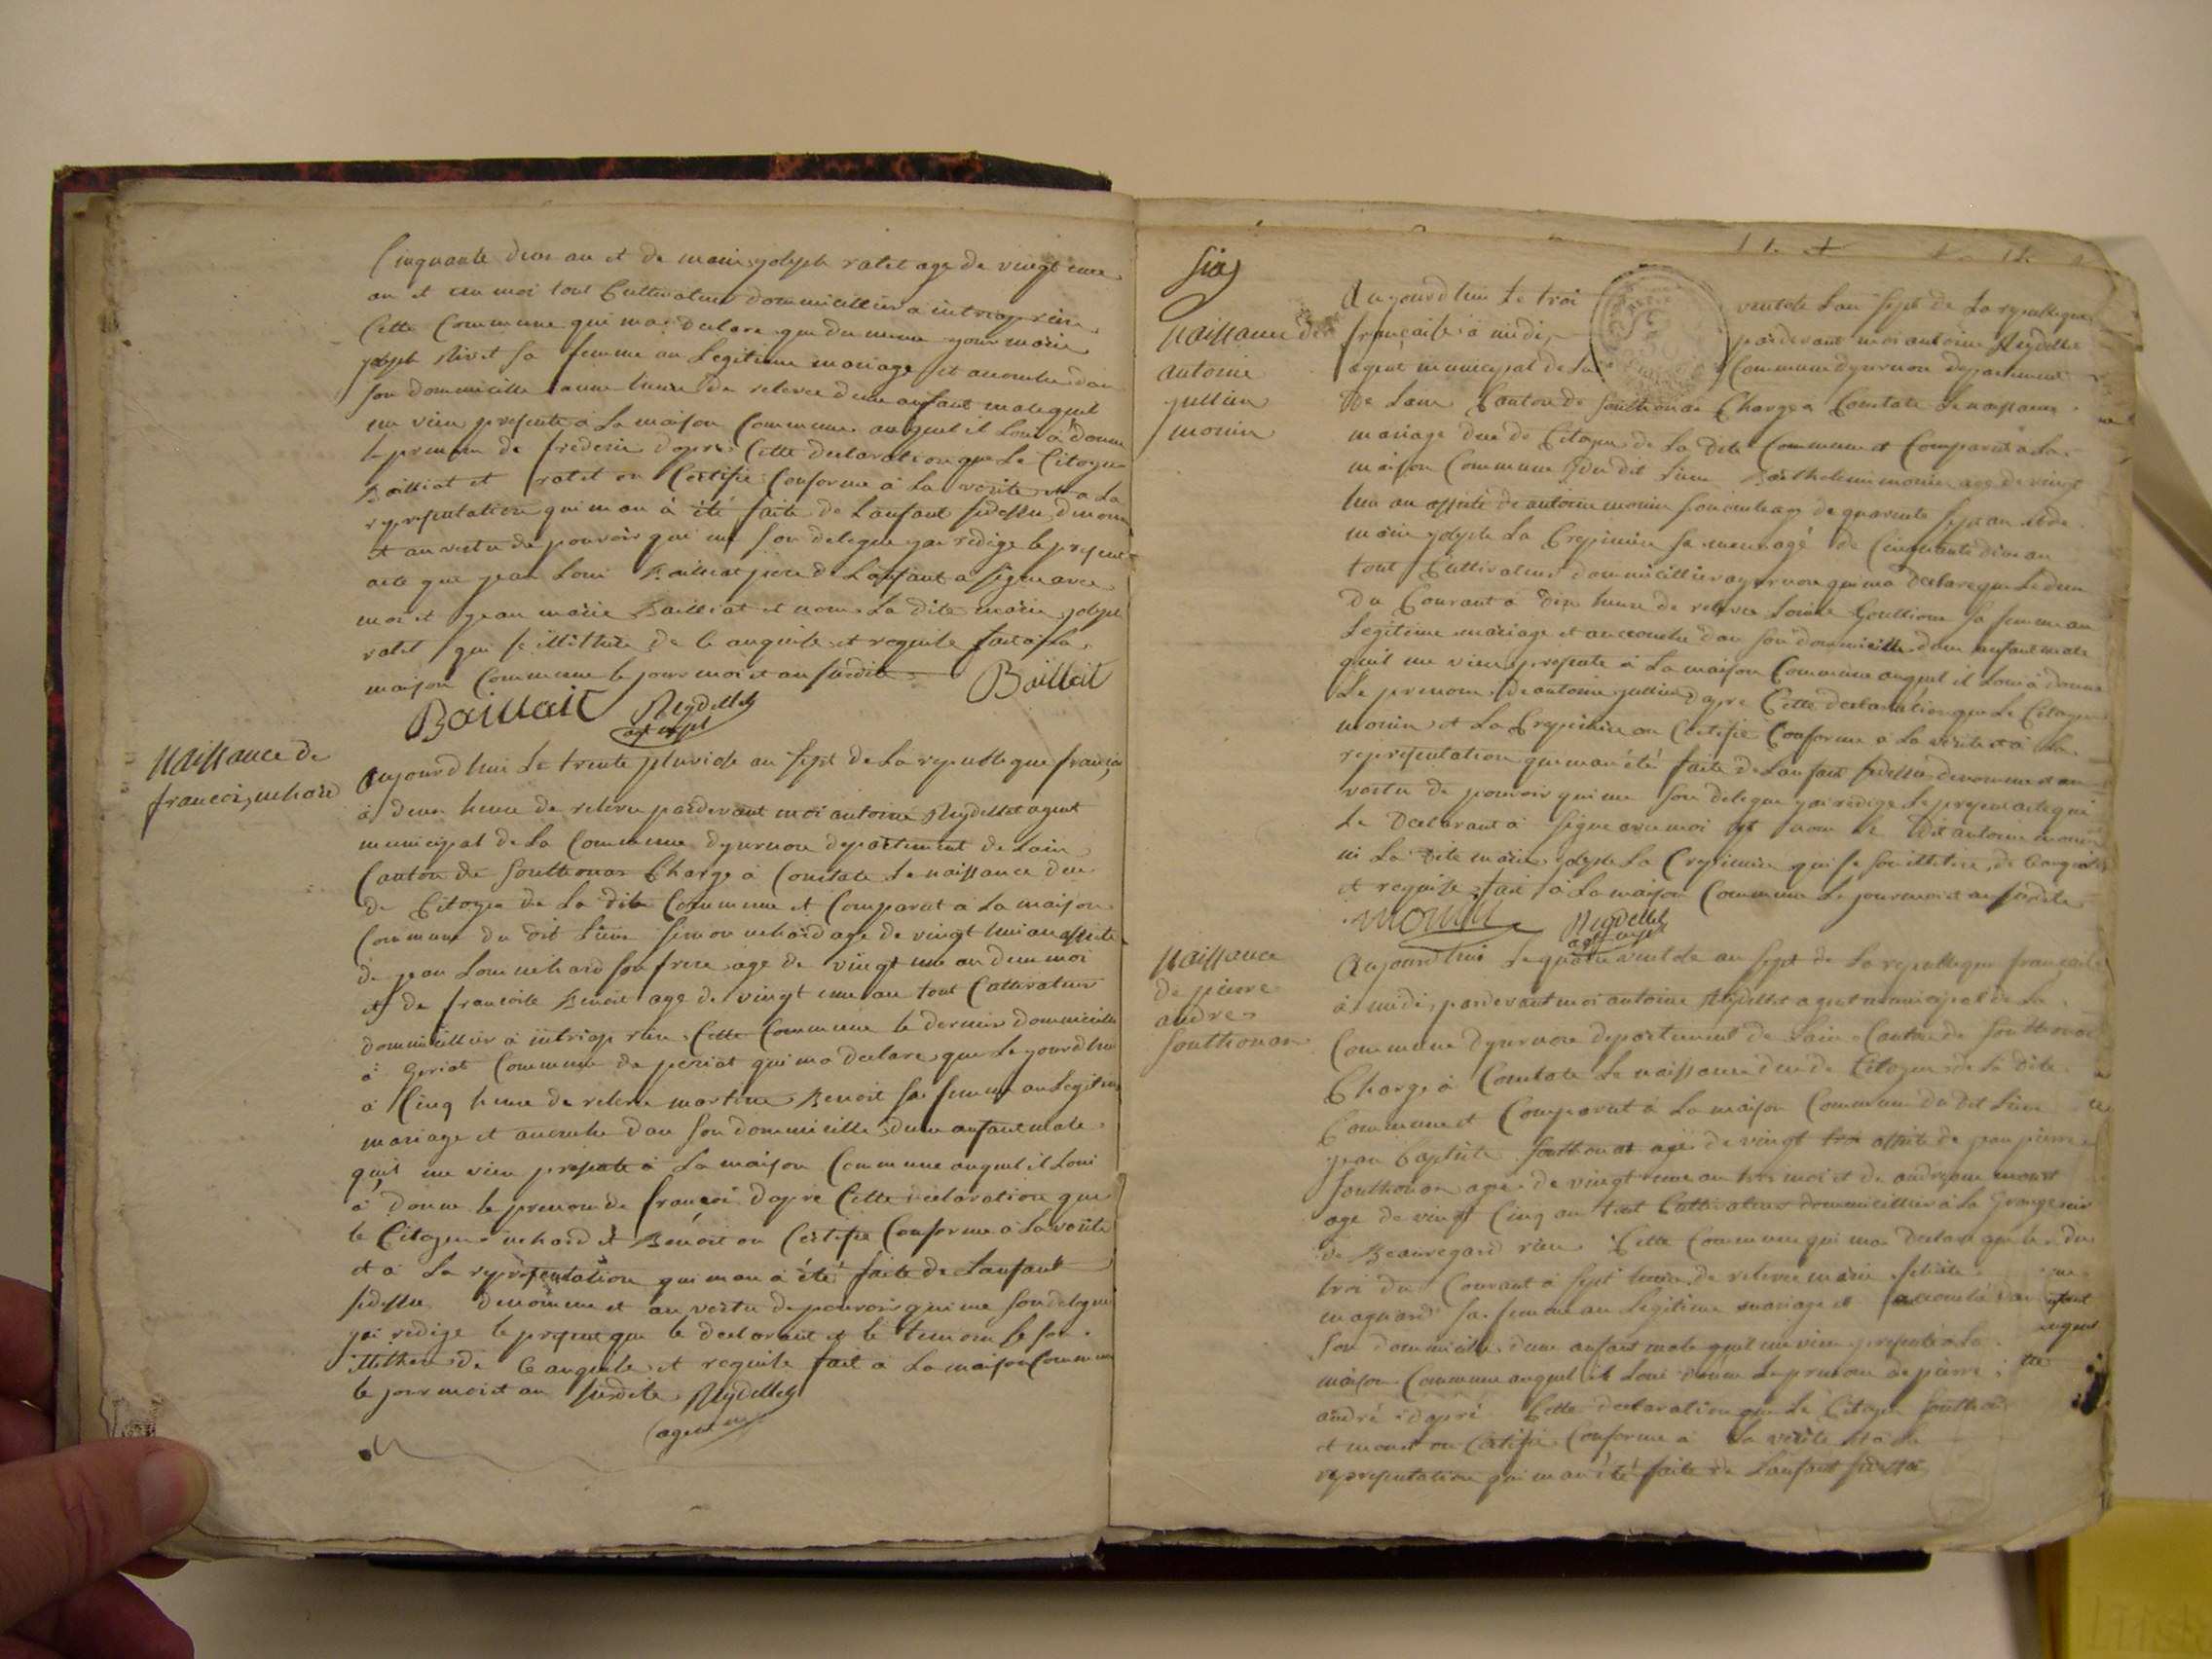 Cinquante deux an et de marie joseph ratet age de vingt une
an et un moi tout Cultivateur dommicillier a intriap rière
Cette Commune qui ma declare que du meme jour marie
joseph Rivet sa femme an Legitime mariage et acouchu dan
son dommicille a une heure de relevee dune anfant male quil
me vien presente a La maison Commune auquel il Loui à donne
le prenom de frederic dapre Cette declaration que Le Citoyen
Bailliat et ratet on Certifie Conforme à La verite et a La
representation qui man à été faite de Lanfant sidessu denome
et an vertu du pouvoir qui me son delegue jai redige le present
acte que jean Loui Bailliat pere de Lanfant a signe avec
moi et jean marie Bailliat et nom La dite marie joseph
ratet qui se illithere de ce anquite et requite fait a La
maison Commune le jour moi et an surdite
Baillait
Baillait Reydellet
agent mpl
Naissance de
francoi nehard
Aujourdhui Le trente pluviose an sept de La republique françai
à deux heure de relevee pardevant moi antoine Reydellet agent
municipal de La Commune dyzernore departement de Lain
Canton de Sonthonax Charge à Constate Le naissance deu
de Citoyen de La dite Commune et Comparut à La maison
Commune du dit Lieu simon nehard age de vingt huit an assiste
de jean Loui nehard son frere age de vingt une an deux moi
et de francoise Benoit age de vingt une an tout Cultivateur
dommicillier à intriap rière Cette Commune le dernier dommicille
à Geriat Commune de periat qui ma declare que Le jourdhui
à Cinq heure de relevee martine Benoit sa femme an Legitime
mariage et acouchu dan son dommicille dune anfant male
quil me vien presente à La maison Commune auquel il Loui
à donne le prenom de françoi dapre Cette declaration que
le Citoyen nehard et Benoit on Certifie Conforme à La verite
et a La representation qui man à été faite de Lanfant
sidessu denomme et an vertu de pouvoir qui me son delegue
jai redige le present que le declarant et le temoin se son
illithere de ce anquite et requite fait a La maison Commune
le jour moi et an surdite Reydellet
agent
six
Naissance de
antoine
jullien
monin
Aujourdhui Le troi ventose Lan sept de La republique
française à midi pardevant moi antoine Reydellet
agent municipal de La Commune dyzernore departement
de Lain Canton de Sonthonax Charge a Constate Le naissance
mariage deu de Citoyen de La dite Commune et Comparut a La
maison Commune du dit Lieu Barthelemi monin age de vingt
huit an assiste de antoine monin son oncle age de quarente sept an et de
marie joseph La Crepinier sa menagé de Cinquante dix an
tout Cultivateur dommicillier a yzernore qui ma declare que Le deux
du Courant à dix heure de relevee Louise Goullioux sa femme an
Legitime mariage et anccouchu dan son dommicille dune anfant male
quil me vien presente à La maison Commune auquel il Loui à donne
Le prenom de antoine jullien dapre Cette declaration que Le Citoyen
monin et La Crepinier on Certifie Conforme à La verite et à La
representation qui man été faite de Lanfant sidessu denomme et an
vertu de pouvoir qui me son delegue jai redige Le present acte que
Le declarant à signe avec moi et nom le dit antoine monin
ni La dite marie joseph La Crepinier qui se son illitere de ce anquite
et requite fait à La maison Commune Le jour moi et an surdite
monin Reydellet
agent mpl
Naissance
de pierre
andre
Sonthonax
Aujourdhui Le quatre ventose an sept de La republique française
à midi pardevant moi antoine Reydellet agent municipal de La
Commune dyzernore departement de Lain Canton de Sonthonax
Charge à Constate Le naissance deu de Citoyen de La dite
Commune et Comparut à La maison Commune du dit Lieu
jean baptiste Sonthonax age de vingt troi assiste de jean pierre
Sonthonax age de vingt une an troi moi et de andreane monet
age de vingt Cinq an tout Cultivateur dommicillier à La Grange
de Beauregard rière Cette Commune qui ma declare que Le du
troi du Courant à sept heure de relevee marie felicite
maguard sa femme an Legitime mariage et acouchu dan
son dommicille dune anfant male quil me vien presente a La
maison Commune auquel il Loui donne Le prenom de pierre
andré dapré Cette declaration que Le Citoyen Sonthonax
et monet on Certifie Conforme à La verite et à La
representation qui man été faite de Lanfant sidessu